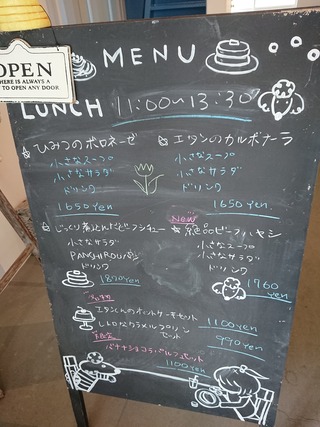 MENU
OPEN
HERE IS ALWAYS A
TO OPEN ANY DOOR
LUNCH 11:00~13:30
☆ ひみつのボロネーゼ
小さなスープ
小さなサラダ
ドリンク
1650yen
☆ エタンのカルボナーラ
小さなスープ
小さなサラダ
ドリンク
1650yen
☆ じっくり煮込んだビーフシチュー
小さなサラダ
PANSHIROUパン
ドリンク
1870yen
New
☆ 絶品ビーフハヤシ
小さなスープ
小さなサラダ
ドリンク
1760 yen
エタンくんのホットケーキセット 1100yen
レトロなカラメルプリン
セット 990yen
バナナショコラパルフェセット
1100yen